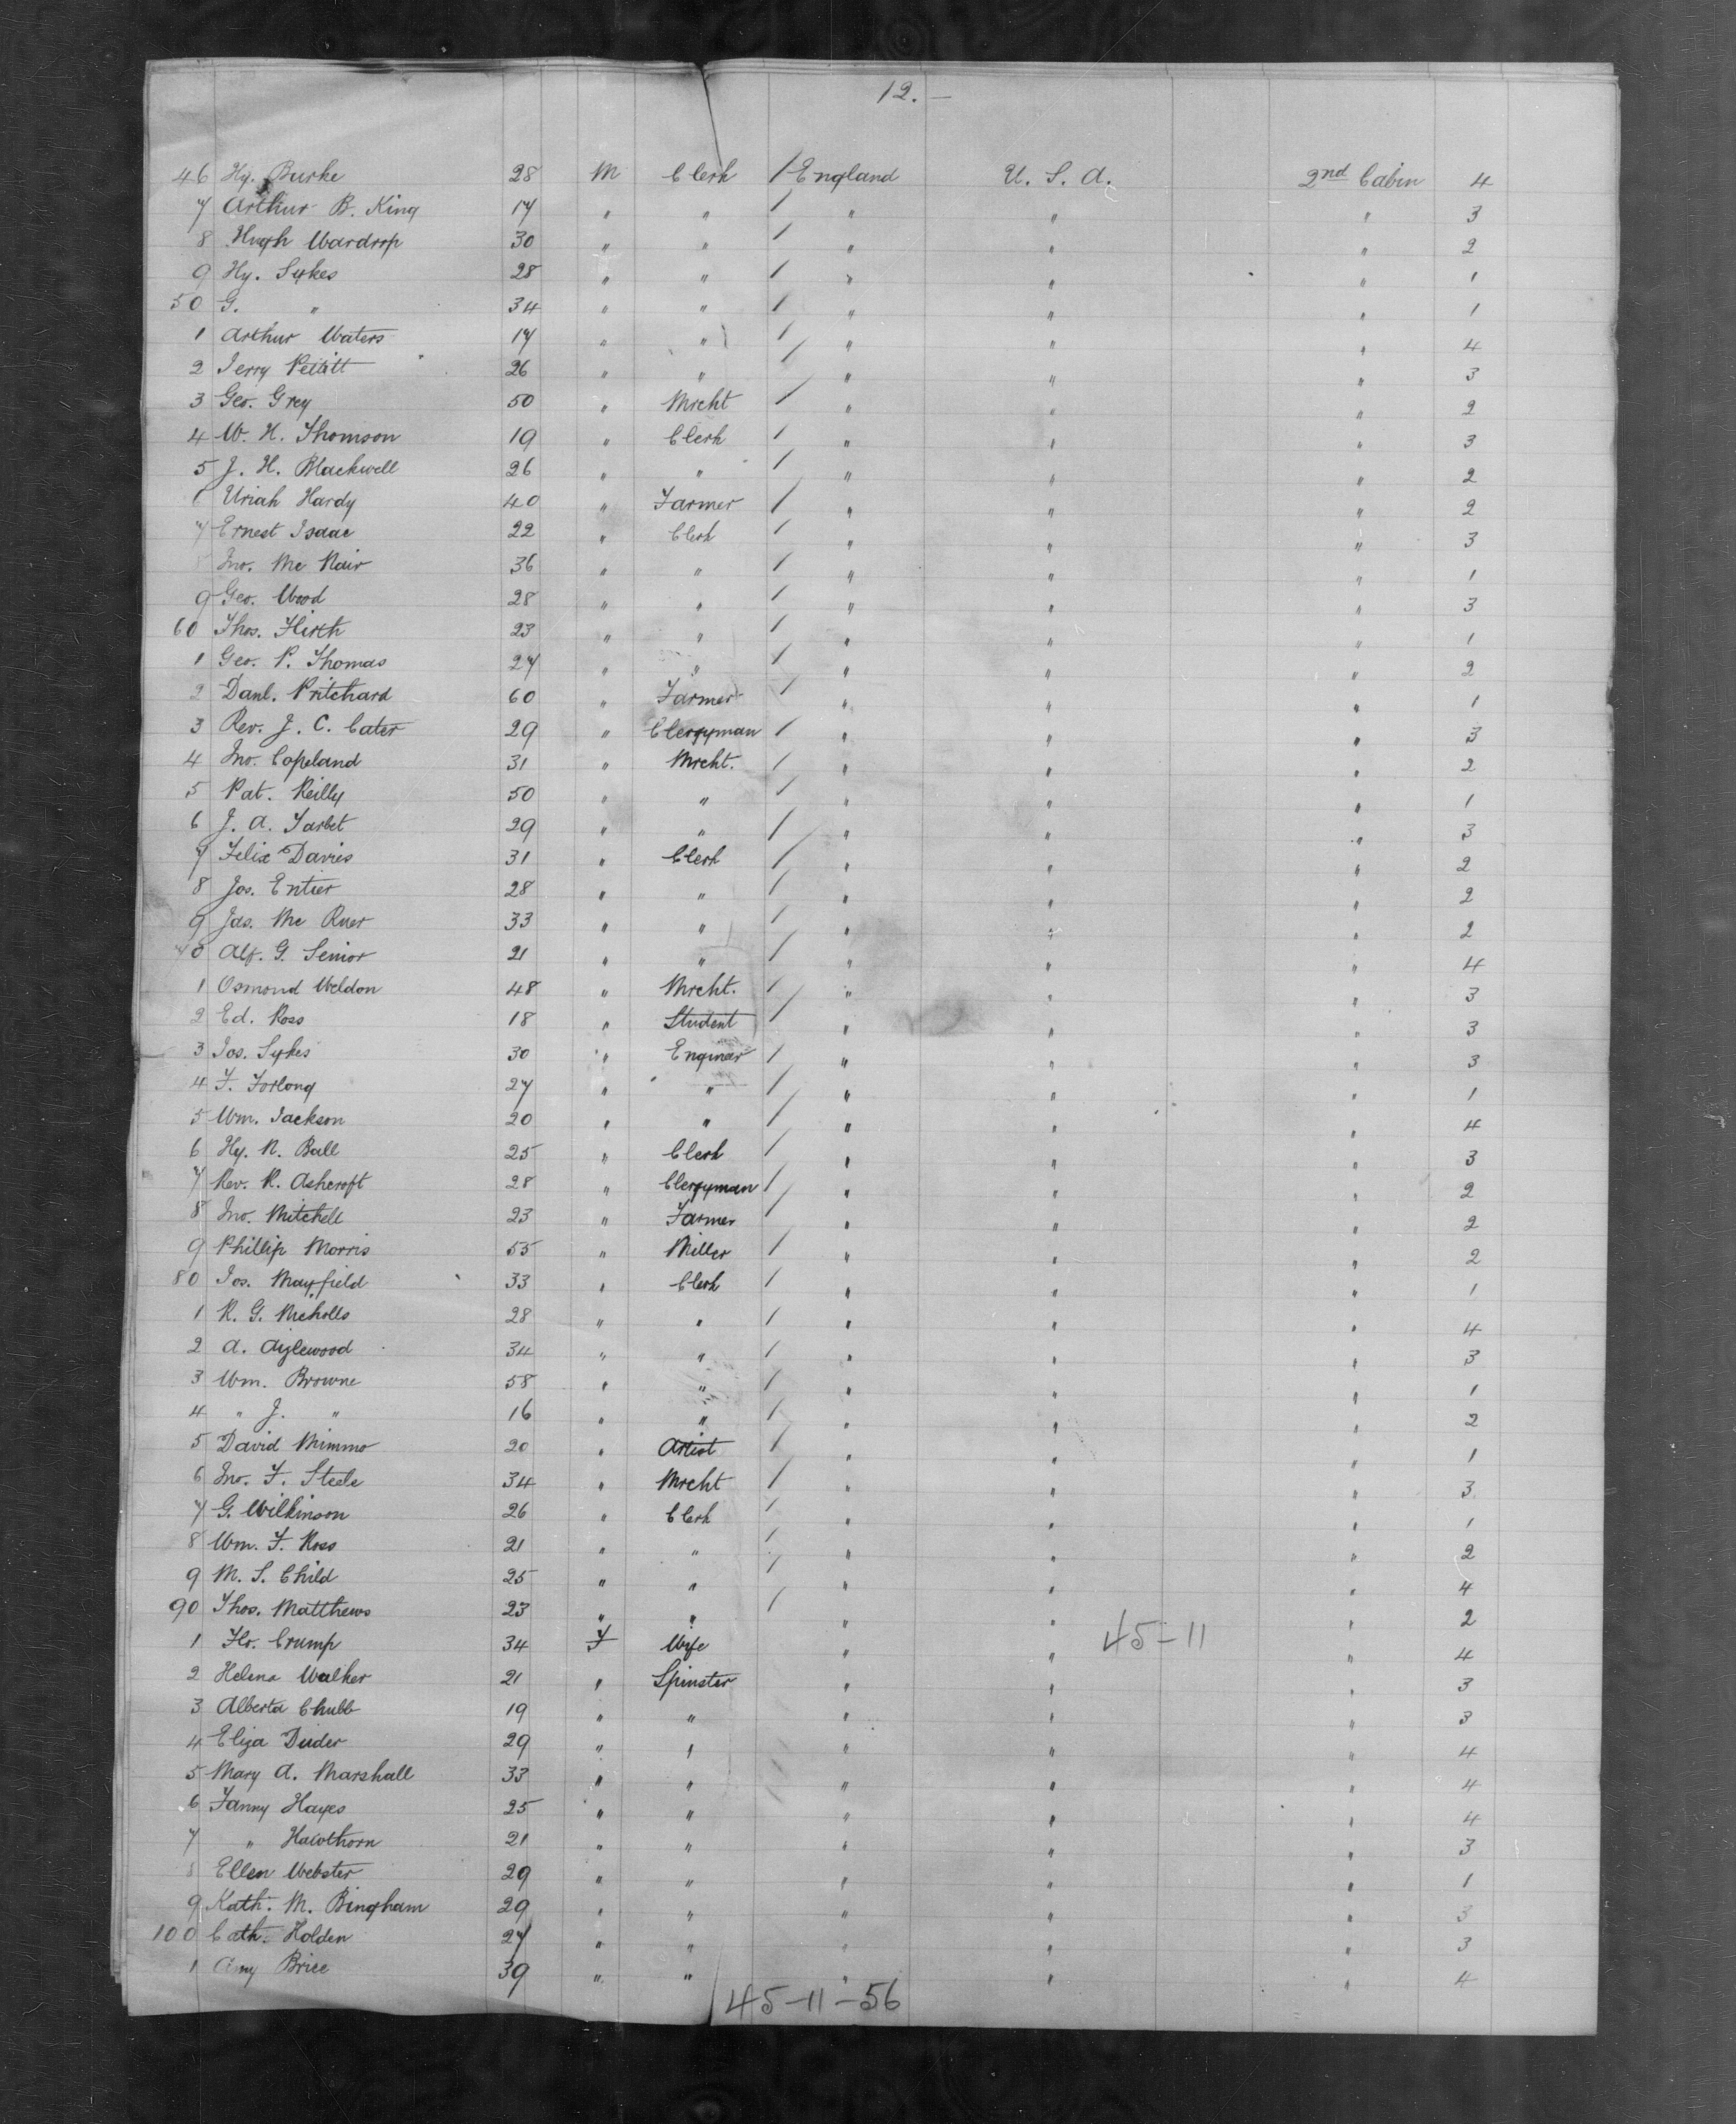 12. —
46 Hy. Burke 28 M Clerk / England U. S. A. 2nd Cabin 4
7 Arthur B. King 17 " " / " " " 3
8 Hugh Wardrop 30 " " / " " " 2
9 Hy. Sykes 28 " " / " " " 1
50 G. " 34 " " / " " " 1
1 Arthur Waters 17 " " / " " " 4
2 Jerry Pettitt 26 " " / " " " 3
3 Geo. Grey 50 " Mrcht / " " " 2
4 W. H. Thomson 19 " Clerk / " " " 3
5 J. H. Blackwell 26 " " / " " " 2
6 Uriah Hardy 40 " Farmer / " " " 2
7 Ernest Isaac 22 " Clerk / " " " 3
8 Jno. Mc Nair 36 " " / " " " 1
9 Geo. Wood 28 " " / " " " 3
60 Thos. Hirth 23 " " / " " " 1
1 Geo. P. Thomas 27 " " / " " " 2
2 Danl. Pritchard 60 " Farmer / " " " 1
3 Rev. J. C. Cater 29 " Clergyman / " " " 3
4 Jno. Copeland 31 " Mrcht. / " " " 2
5 Pat. Reilly 50 " " / " " " 1
6 J. A. Tarbet 29 " " / " " " 3
7 Felix Davies 31 " Clerk / " " " 2
8 Jos. Entier 28 " " / " " " 2
9 Jas. Mc Ruer 33 " " / " " " 2
70 Alf. G. Senior 21 " " / " " " 4
1 Osmond Weldon 48 " Mrcht. / " " " 3
2 Ed. Ross 18 " Student / " " " 3
3 Jos. Sykes 30 " Engineer / " " " 3
4 F. Forlong 27 " " / " " " 1
5 Wm. Jackson 20 " " / " " " 4
6 Hy. R. Ball 25 " Clerk / " " " 3
7 Rev. R. Ashcroft 28 " Clergyman / " " " 2
8 Jno. Mitchell 23 " Farmer / " " " 2
9 Phillip Morris 55 " Miller / " " " 2
80 Jos. Mayfield 33 " Clerk / " " " 1
1 R. G. Nicholls 28 " " / " " " 4
2 A. Aizlewood 34 " " / " " " 3
3 Wm. Browne 58 " " / " " " 1
4 " J. " 16 " " / " " " 2
5 David Mimmo 20 " Artist / " " " 1
6 Jno. F. Steele 34 " Mrcht / " " " 3
7 G. Wilkinson 26 " Clerk / " " " 1
8 Wm. F. Ross 21 " " / " " " 2
9 M. S. Child 25 " " / " " " 4
90 Thos. Matthews 23 " " / " " " 2
45-11
1 Flo. Crump 34 F Wife " " " 4
2 Helena Walker 21 " Spinster " " " 3
3 Alberta Chubb 19 " " " " " 3
4 Eliza Duder 29 " " " " " 4
5 Mary A. Marshall 33 " " " " " 4
6 Fanny Hayes 25 " " " " " 4
7 " Hawthorn 21 " " " " " 3
8 Ellen Webster 29 " " " " " 1
9 Kath. M. Bingham 29 " " " " " 3
100 Cath. Holden 27 " " " " " 3
1 Amy Brice 39 " " " " " 4
45-11-56